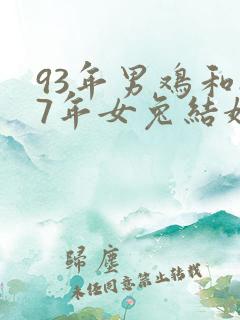 93年男鸡和
7年女兔结
歸塵
未任同意禁止转载